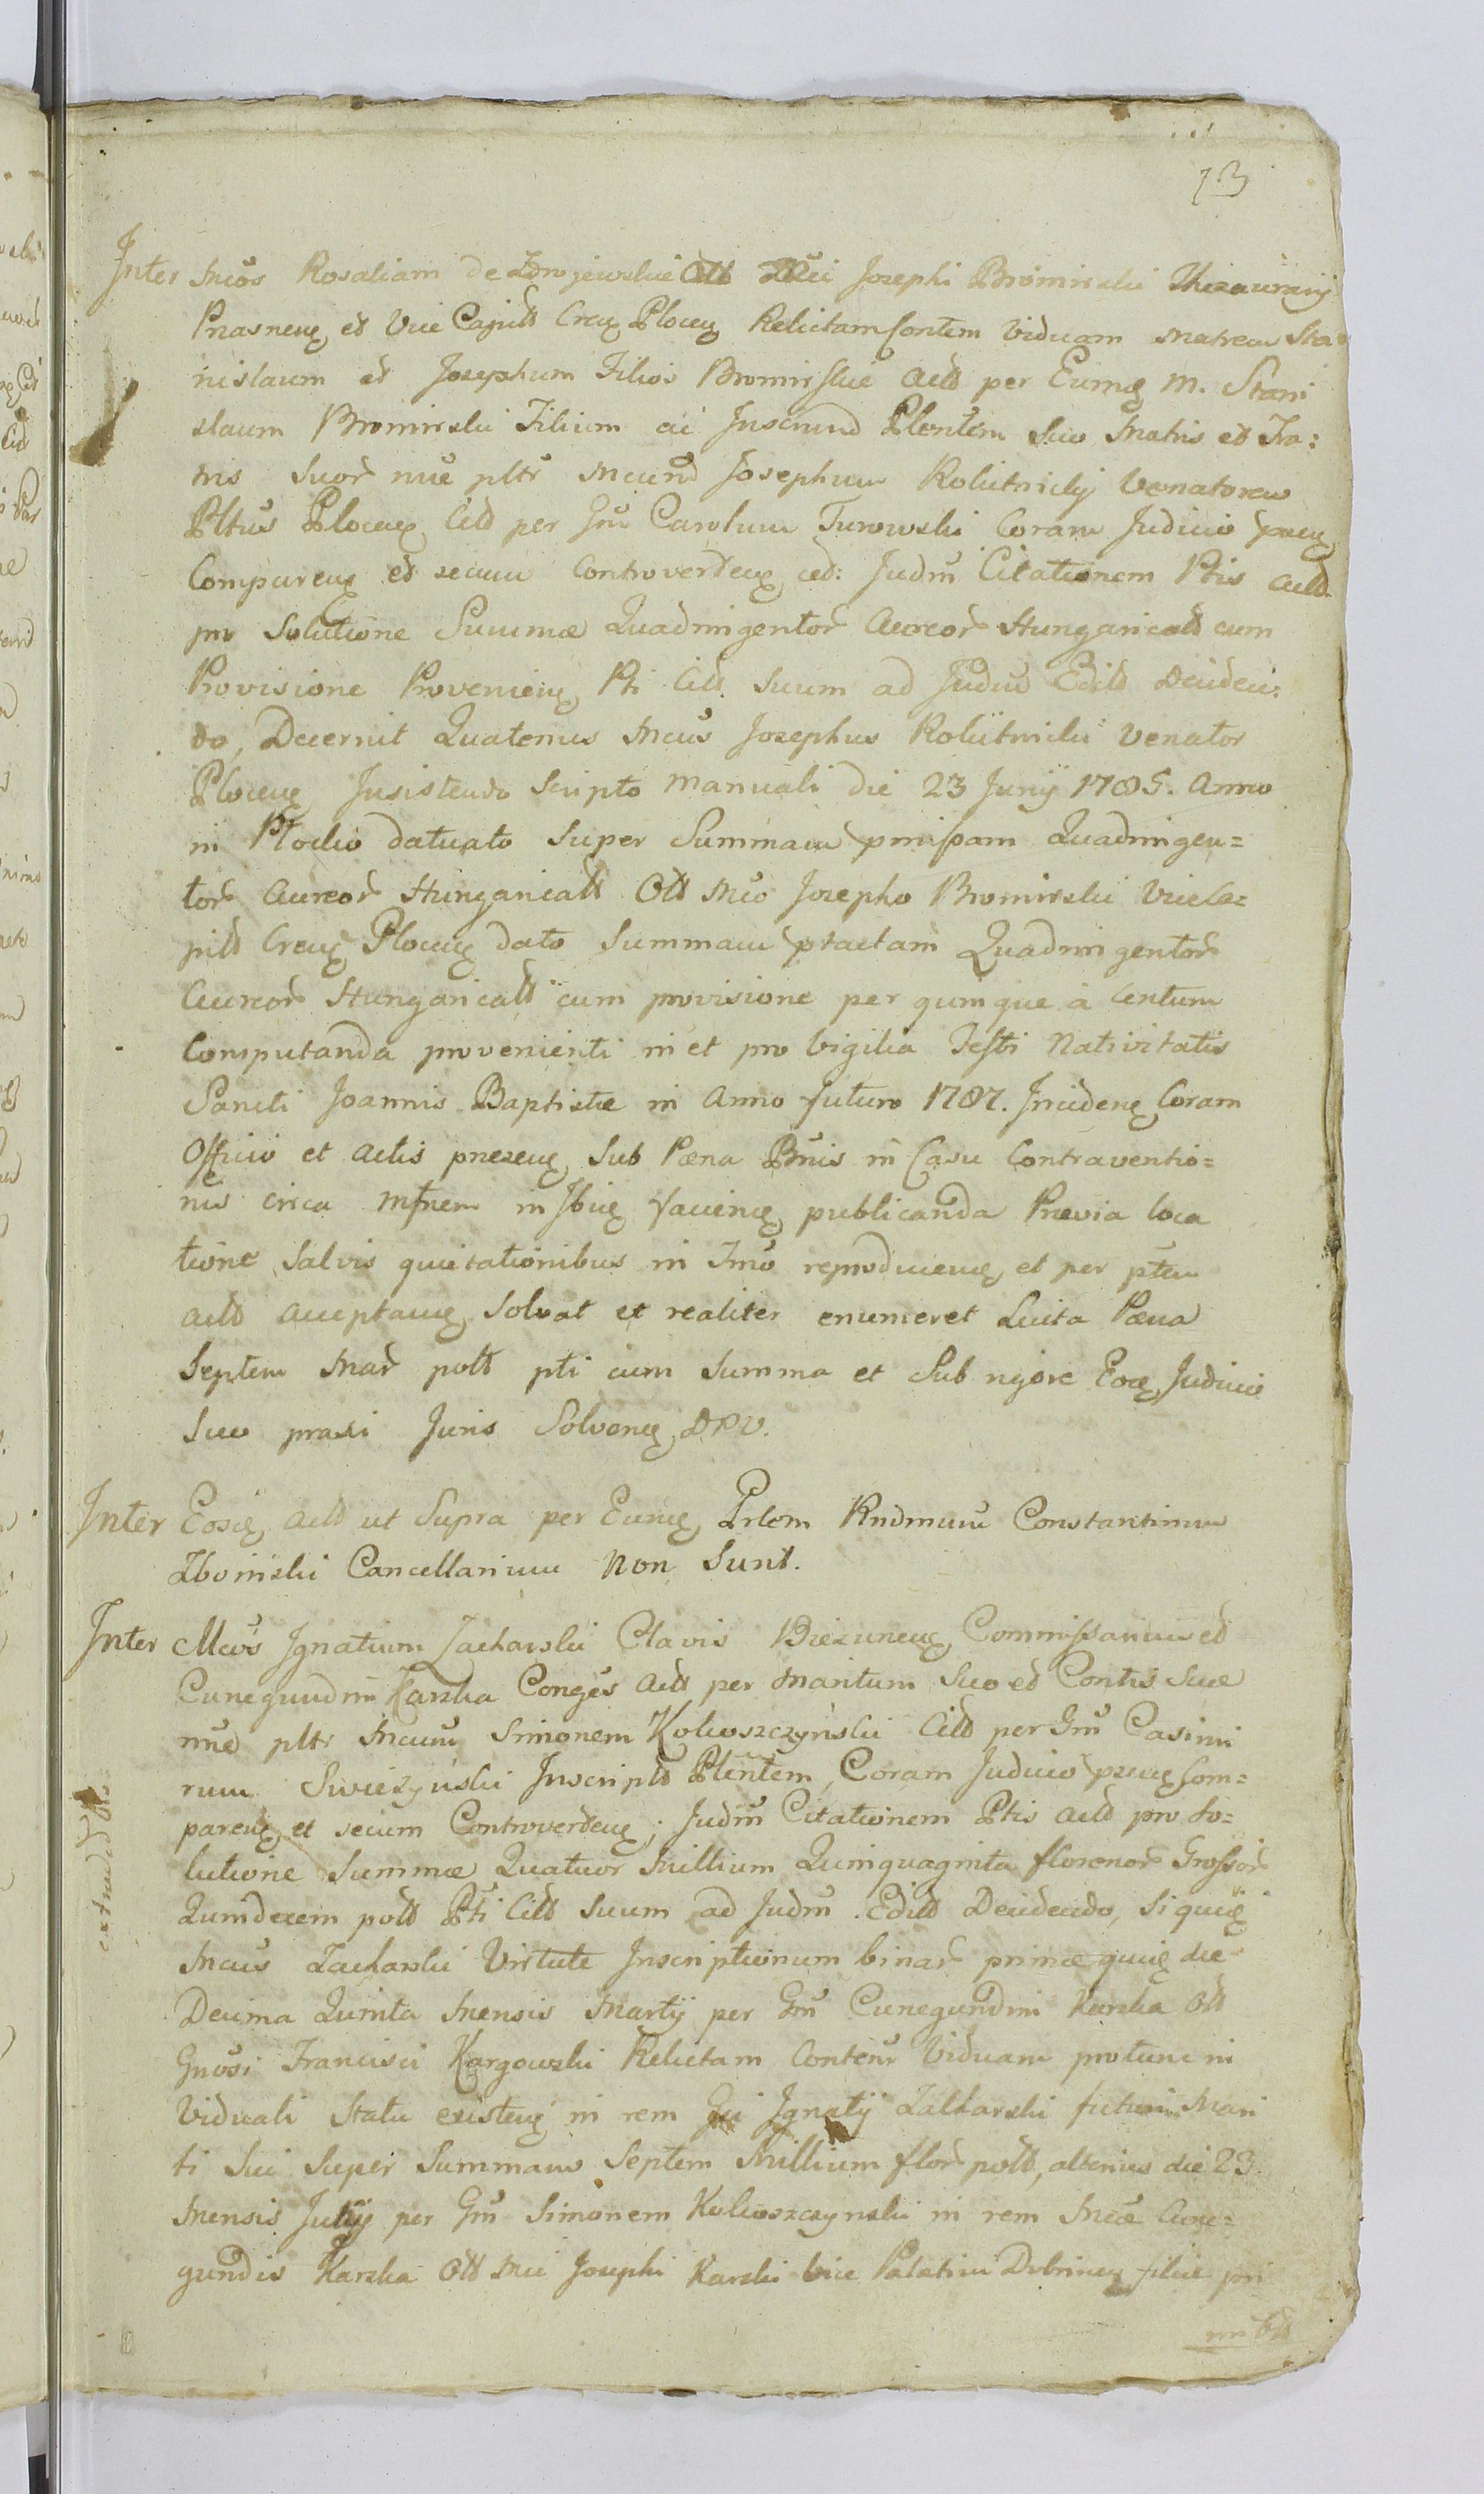 73
Inter Mcos Rosaliam de Zdrojewskie Olt Mci Josephi Bromirski Thesaurarij
Prasneng et Vice Capitt Creng Ploceng Relictam Contem Viduam Matrem Sta=
nislaum et Josephum Filios Bromirskie Actt per Eumq M. Stani
slaum Bromirski Filium ac Inscriund Plentem Suo Matris et Fra:
tris Suor nne pltr Mcumd Josephum Rokitnicky Venatorem
Pltus Plocenq Citt per Gm Carolum Turowski Coram Judicio prenq
Comparenq et secum Controvertenq ced: Judm Citationem Ptis Actt
pro Solutione Summæ Quadringentor Aureor Hungaricalt cum
Provisione Provenienq Pti Citt Suum ad Judm Editt Deciden:
do, Decernit Quatenus Mcus Josephus Rokitnicki Venator
Plocenq Insistendo Scripto Manuali die 23 Junij 1785. Anno
in Plocko datuato Super Summam pmissam Quadringen=
tor Aureor Hungaricalt Olt Mco Josepho Bromirski Vice Ca=
pitt Crenq Plocenq dato Summam ptactam Quadringentor
Aureor Hungaricalt cum provisione per quinque à Centum
Computanda provenienti in et pro Vigilia Festi Nativitatis
Sancti Joannis Baptistæ in Anno futuro 1787. Incidenq Coram
Officio et Actis prezenq Sub Pæna Bnis in Casu Contraventio=
nis circa Mfnem in Jbiq facienq publicanda Prævia loca
tione Salvis quietationibus in Tmo reproducenq et per ptem
actt acceptanq Solvat et realiter enumeret Luita Pæna
Septem Mar polt pti cum Summa et Sub rigore Eoq Judicii
Suo praxi Juris Solvenq DPV.
Inter Eosq Actt ut Supra per Eumq Prlem Rndmum Constantinum
Zboinski Cancellarium Non Sunt.
Inter Mcos Ignatium Zacharski Clavis Biezunenq Commissarium et
Cunegundm Karska Conges Actt per Maritum Suo et Contis Suæ
nne pltr Mcum Simonem Kokoszczynski Citt per Gm Casimi
rum Swiezynski Inscriptt Plentem, Coram Judicio prenq Com=
parenq et secum Controvertenq; Judm Citationem Ptis Actt pro So=
lutione Summæ Quatuor Millium Quinquaginta florenor Grossor
Quindecem polt Pti Citt Suum ad Judm Editt Decidendo, Siquiq
Mcus Zacharski Virtute Inscriptionum binar primæ quiq die
Decima Quinta Mensis Martij per Gm Cunegundm Karska Olt
Gnosi Francisci Kargowski Relictam Contem Viduam protunc in
Viduali Statu existenq in rem Gi Ignatij Zakharski futuri Mari
ti Sui Super Summam Septem Millium flor polt, alterius die 23
Mensis Julij per Gm Simonem Kokoszczynski in rem Mcæ Cune=
gundis Karska Olt Mci Josephi Karski Vice Palatini Dobrinenq filiæ pri